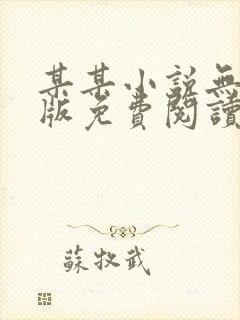 某某小說無
版免費閱讀
蘇牧武